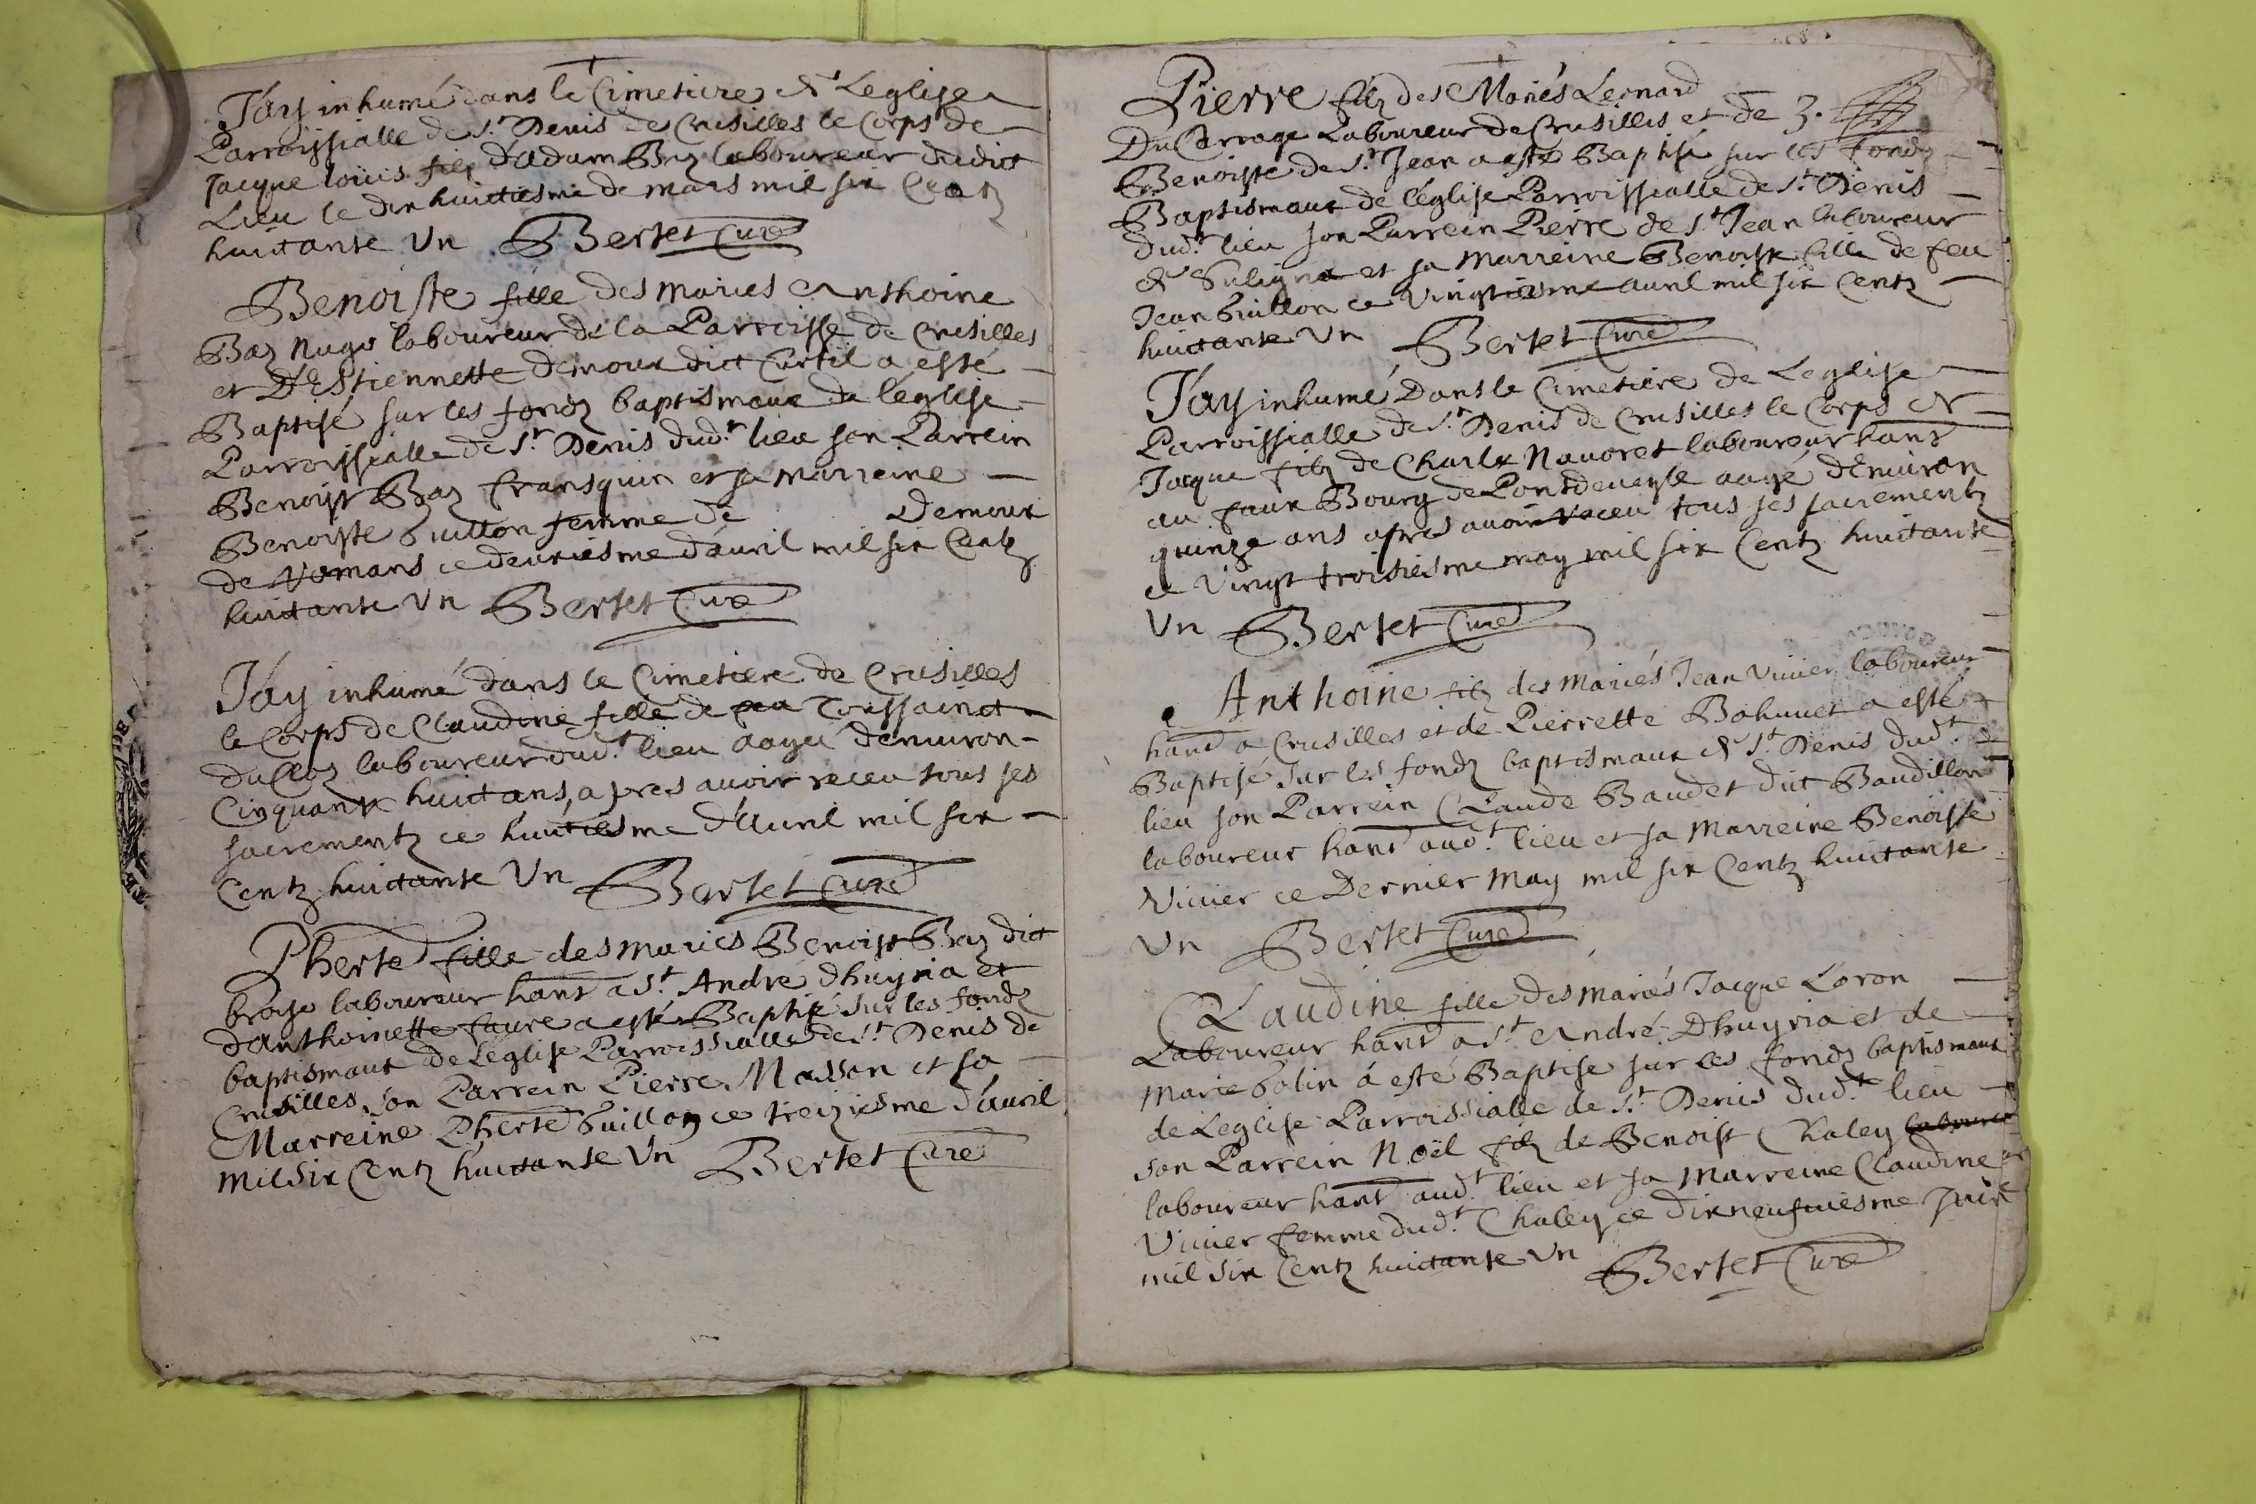 J'ay inhumé dans le Cimetiere de L'eglise
Parroissialle de St. Denis de Crusilles le Corps de
Jacque loüis filz d'Adam Baz laboureur dudict
Lieu le dix huictiesme de mars mil six Centz
huictante Un Bertet Curé
Benoiste fille des mariés Anthoine
Baz Nugo laboureur de la Parroisse de Crusilles
et D'Estiennette demoux dict Curtil a esté
Baptisé sur les fondz baptismaux de l'église
Parroissialle de St. Denis dudt. lieu son Parrein
Benoist Baz fransquin et sa Marreine
Benoiste Guillon femme de Demoux
de Romans ce deuxiesme d'avril mil six Centz
huictante Un Bertet Curé
J'ay inhumé dans le Cimetiere de Crusilles
le Corps de Claudine fille de feu Toussainct
Du Cloz laboureur dudt. lieu aagé d'environ
Cinquante huict ans, apres avoir receu tous ses
sacrementz ce huictiesme d'Auril mil six
Centz huictante Un Bertet Curé
Pherte fille des mariés Benoist Baz dict
broyo laboureur hant a St. André Dhuyria et
d'Anthoinette faure a esté Baptisé sur les fondz
baptismaux de L'église Parroissialle de St. Denis de
Crusilles, son Parrein Pierre Masson et sa
Marreine Pherte Guillon ce treiziesme d'avril
Mil Six Centz huictante Un Bertet Curé
Pierre filz des Mariés Leonard
Du Carroge Laboureur de Crusilles et de 3.
Benoiste de St. Jean a esté Baptisé sur les fondz
Baptismaux de l'église Parroissialle de St. Denis
dudt. lieu son Parrein Pierre de St. Jean laboureur
de Suligna et sa Marreine Benoiste fille de feu
Jean Guillon ce Vingtiesme auril mil six Centz
huictante Un Bertet Curé
J'ay inhumé Dans le Cimetiere de L'eglise
Parroissialle de St. Denis de Crusilles le Corps de
Jacque filz de Charle Navoret laboureur hant
au faux Bourg de Pontdeveyle aagé d'environ
quinze ans apres avoir receu tous ses sacrementz
ce Vingt troisiesme may mil six Centz huictante
Un Bertet Curé
Anthoine filz des mariés Jean Vivier laboureur
hant a Crusilles et de Pierrette Bohuuet a esté
Baptisé sur les fondz baptismaux de St. Denis dudt.
lieu son Parrein Claude Baudet dict Baudillon
laboureur hant audt. lieu et sa Marreine Benoiste
Vivier ce Dernier May mil six Centz huictante
Un Bertet Curé
Claudine fille des mariés Jacque Loron
Laboureur hant a St. André Dhuyria et de
Marie Golin a esté Baptisé sur les fondz baptismaux
de L'eglise Parroissialle de St. Denis dudt. lieu
son Parrein Noël filz de Benoist Chaley
laboureur hant audt. lieu et sa Marreine Claudine
Vivier femme dudt. Chaley ce dixneufuiesme Juin
mil six Centz huictante Un Bertet Curé